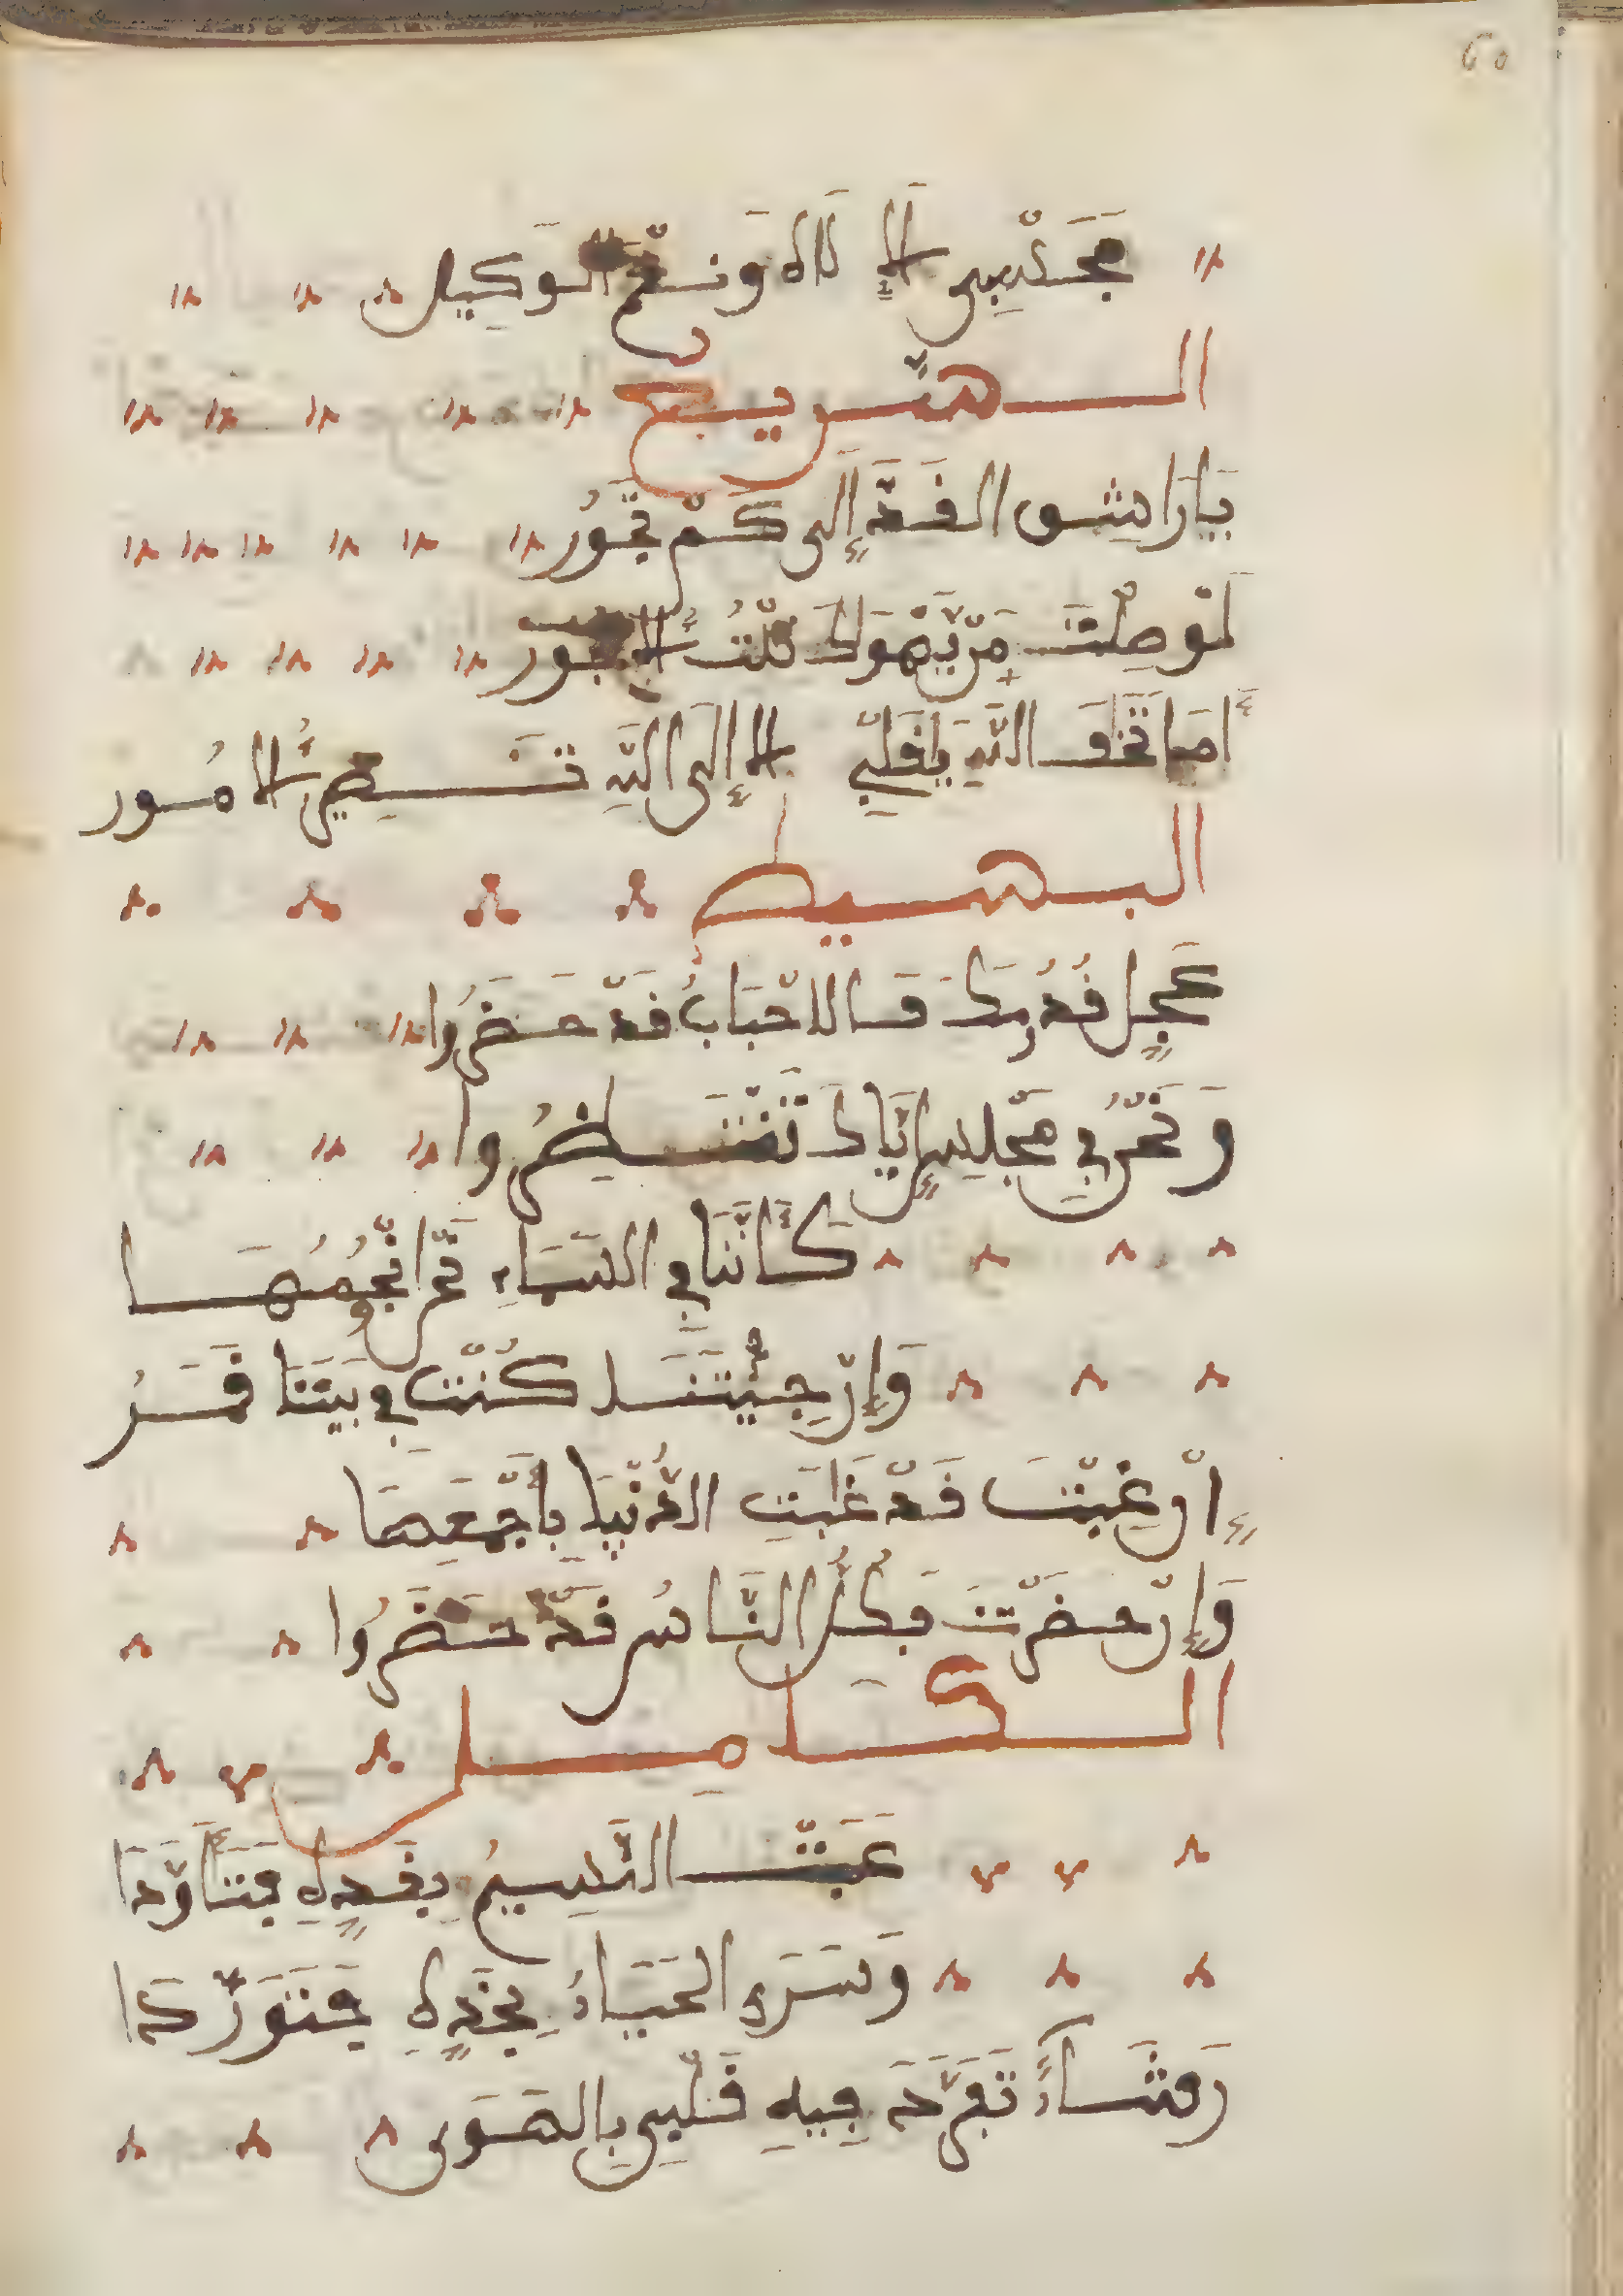 60
فحسبي الإلاه ونعم الوكيل
السريع
يا رايشق القد إلى كم تجور
لو صلت من يهواك نلت الاجور
أما تخاف الله يا قلبي
الا إلى الله تصير الامور
البسيط
عجل فديتك فالاحباب قد حضروا
ونحن في مجلس إياك ننتظروا
كأننا في السماء نحن انجمها
وإن جيتنا كنت في بيتنا قمر
إن غبت قد غابت الدنيا بأجمعها
وإن حضرت فكل الناس قد حضروا
الكامل
عبث النسيم بقده فتأودا
وسرى الحياء بخده فتوردا
رشأ تفرد فيه قلبي بالهوى